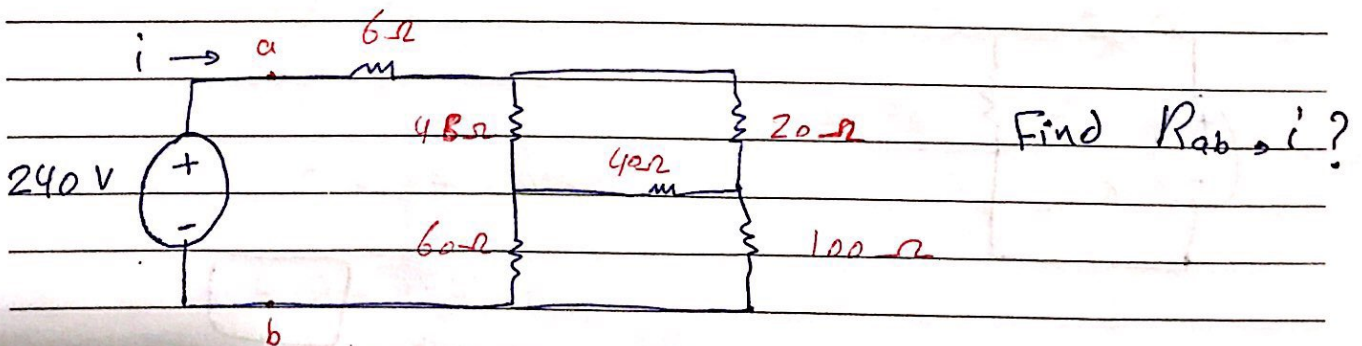 i → a 6Ω
48Ω
20Ω
Find Rab, i ?
40Ω
240 V
+
-
60Ω
100Ω
b